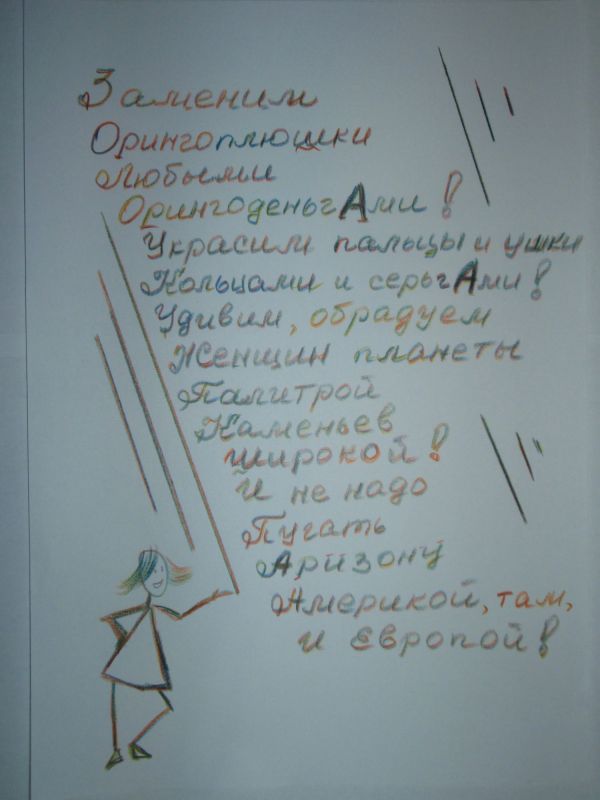 Заменим
Орингоплюшки
Любыми
ОрингоденьгАми!
Украсим пальцы и ушки
Кольцами и серьгАми!
Удивим, обрадуем
Женщин планеты
Палитрой
Каменьев
широкой!
И не надо
Пугать
Аризону
Америкой, там,
и Европой!